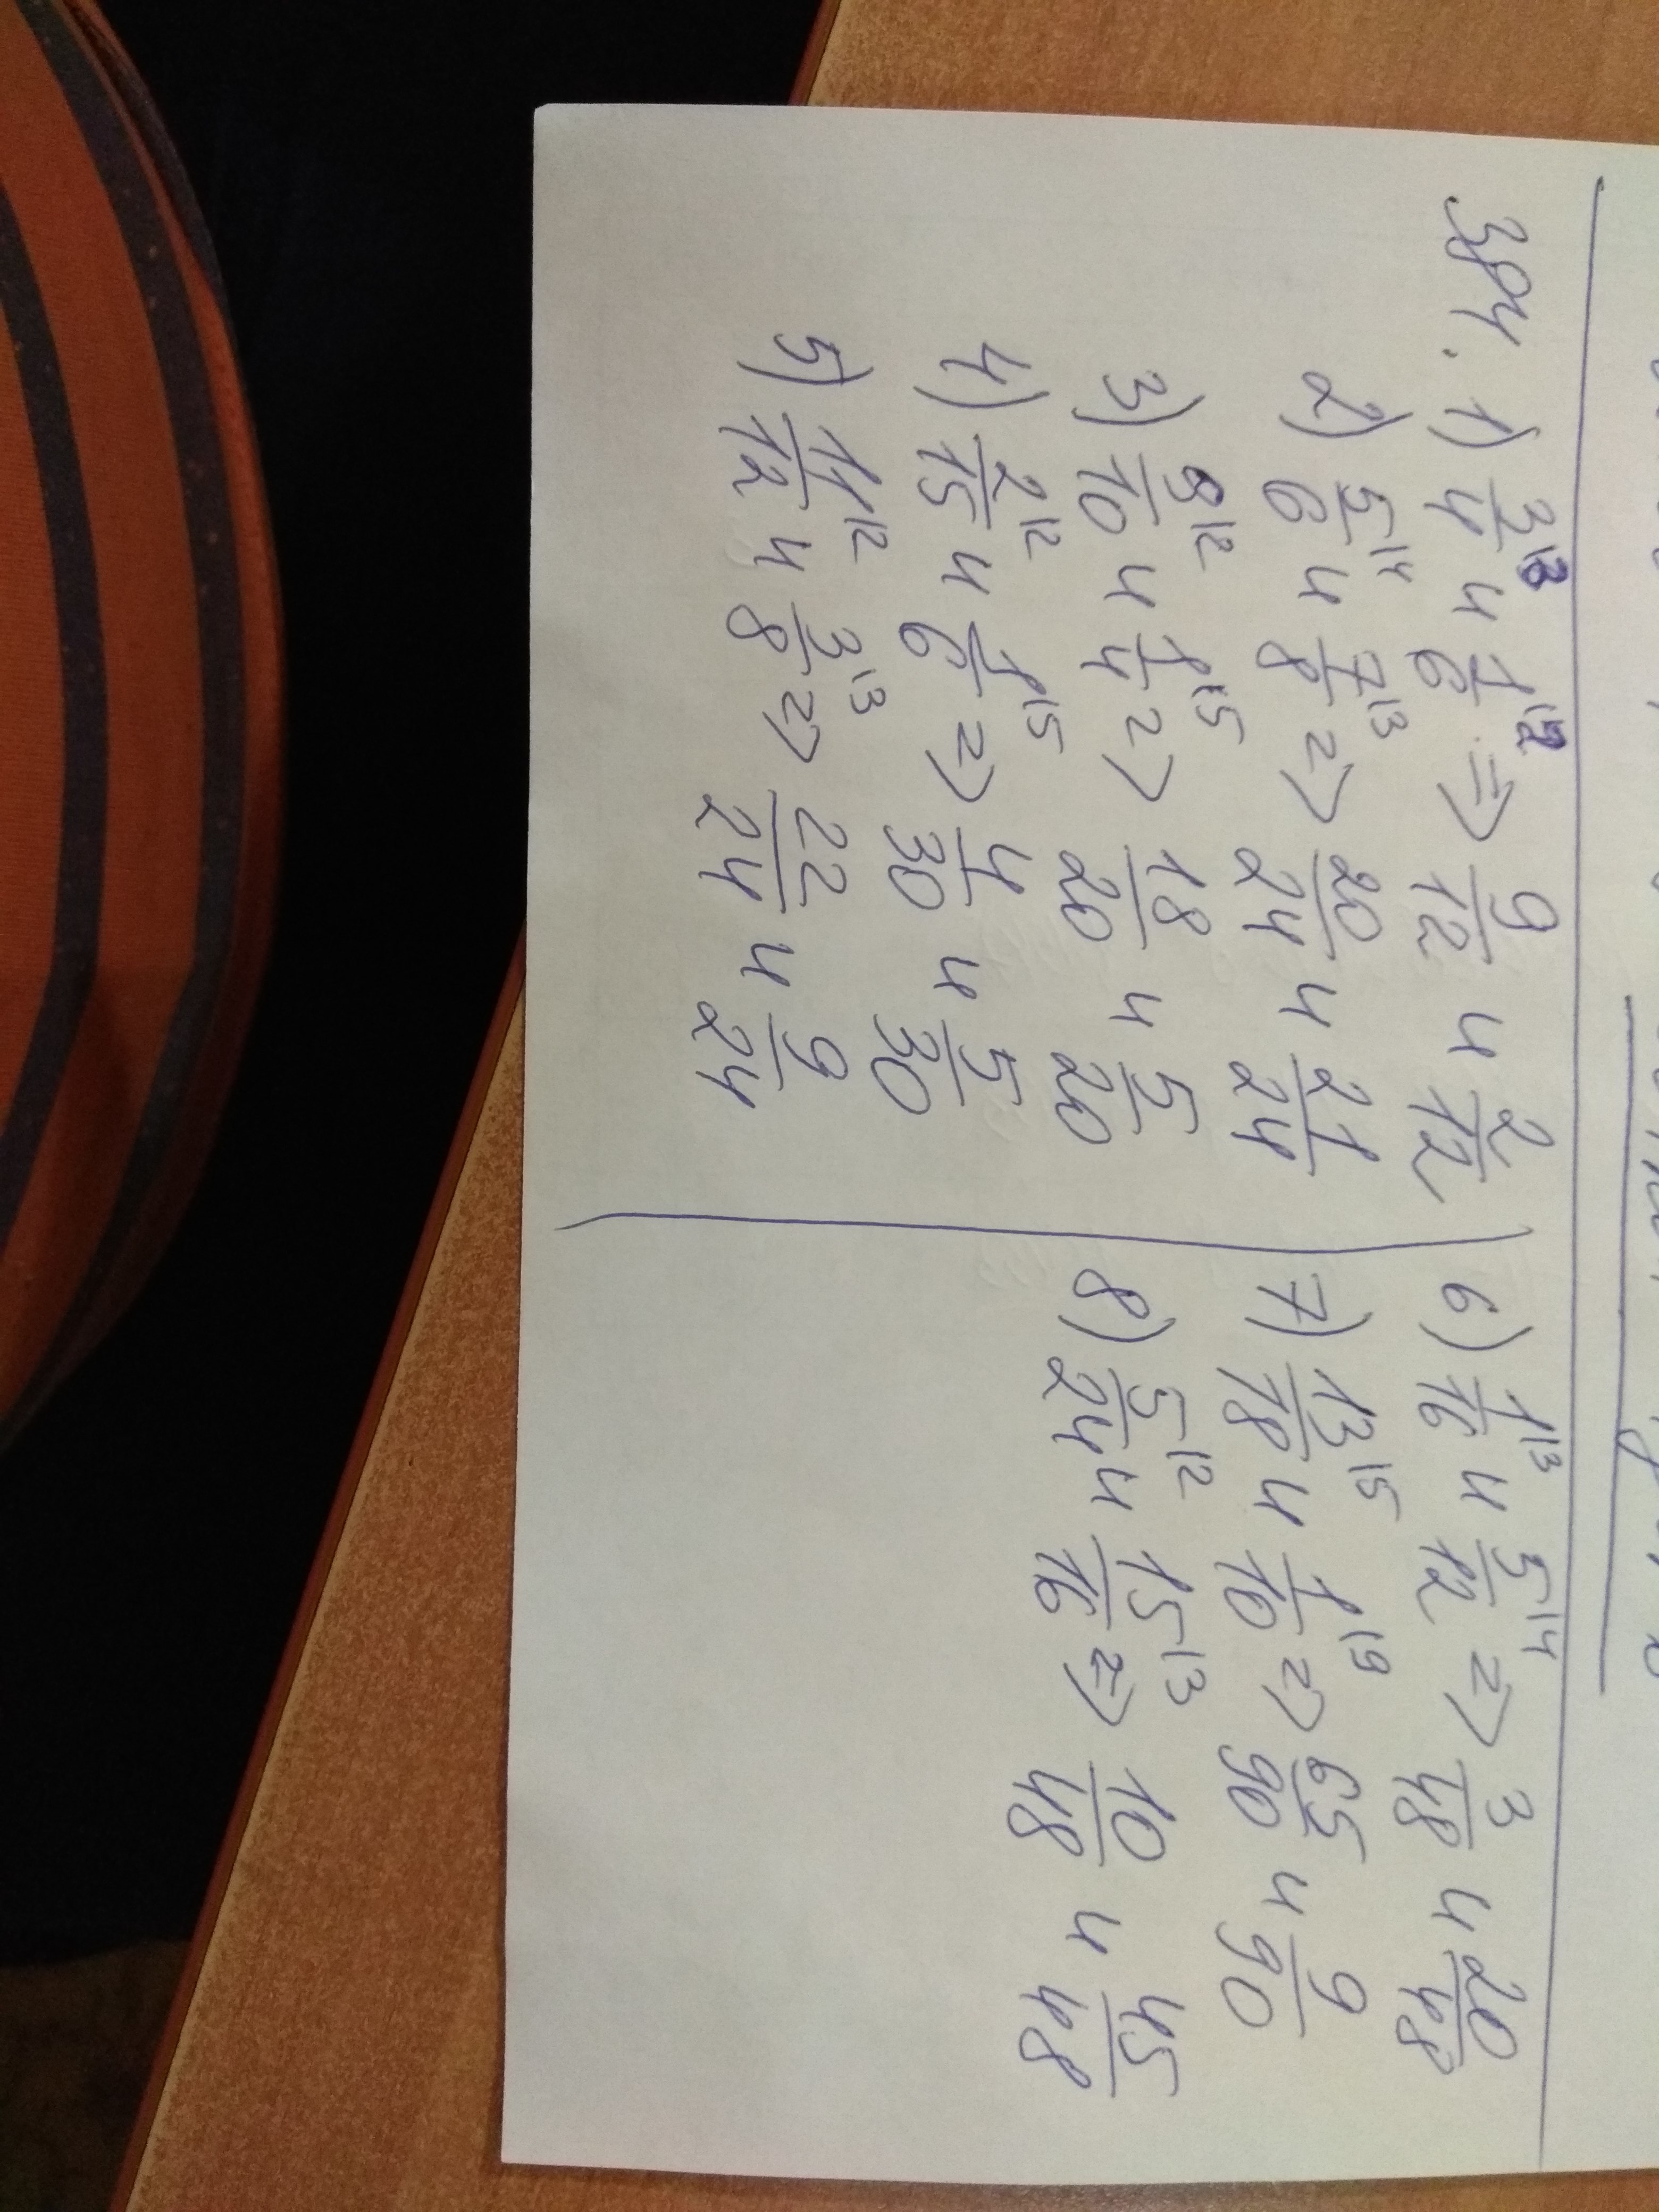 384. 1) 3/4 \3 и 1/6 \2 => 9/12 и 2/12
2) 5/6 \4 и 7/8 \3 => 20/24 и 21/24
3) 9/10 \2 и 1/4 \5 => 18/20 и 5/20
4) 2/15 \2 и 1/6 \5 => 4/30 и 5/30
5) 11/12 \2 и 3/8 \3 => 22/24 и 9/24
6) 1/16 \3 и 5/12 \4 => 3/48 и 20/48
7) 13/18 \5 и 1/10 \9 => 65/90 и 9/90
8) 5/24 \2 и 15/16 \3 => 10/48 и 45/48